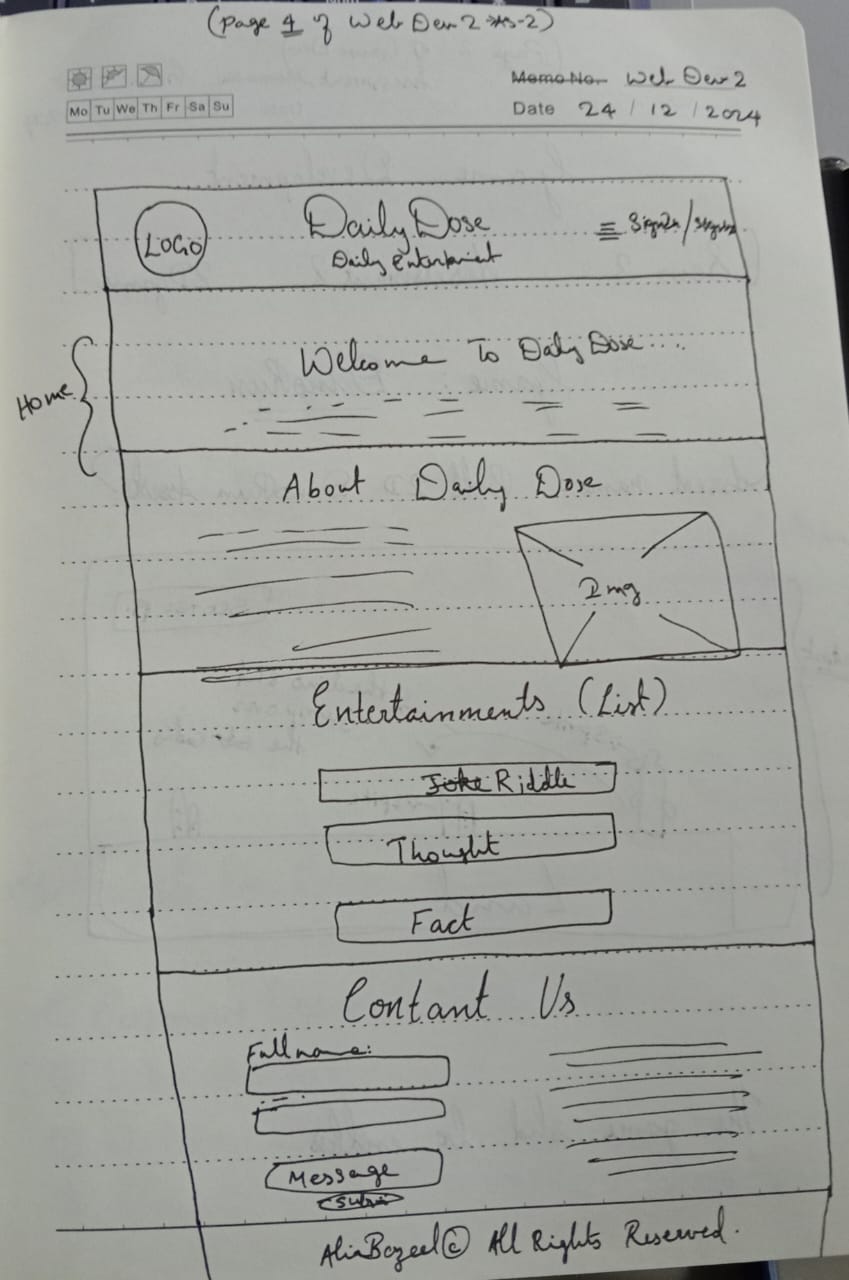 (page 4 of Web Dev 2
Memo No. Web Dev 2
Mo Tu We Th Fr Sa Su
Date 24 / 12 / 2024
LOGO
Daily Dose
Daily Entertainment
SignIn / SignUp
Home
Welcome To Daily Dose....
About Daily Dose
Img
Entertainments (List)
Joke Riddle
Thought
Fact
Contant Us
Fullname:
Message
© All Rights Reserved.